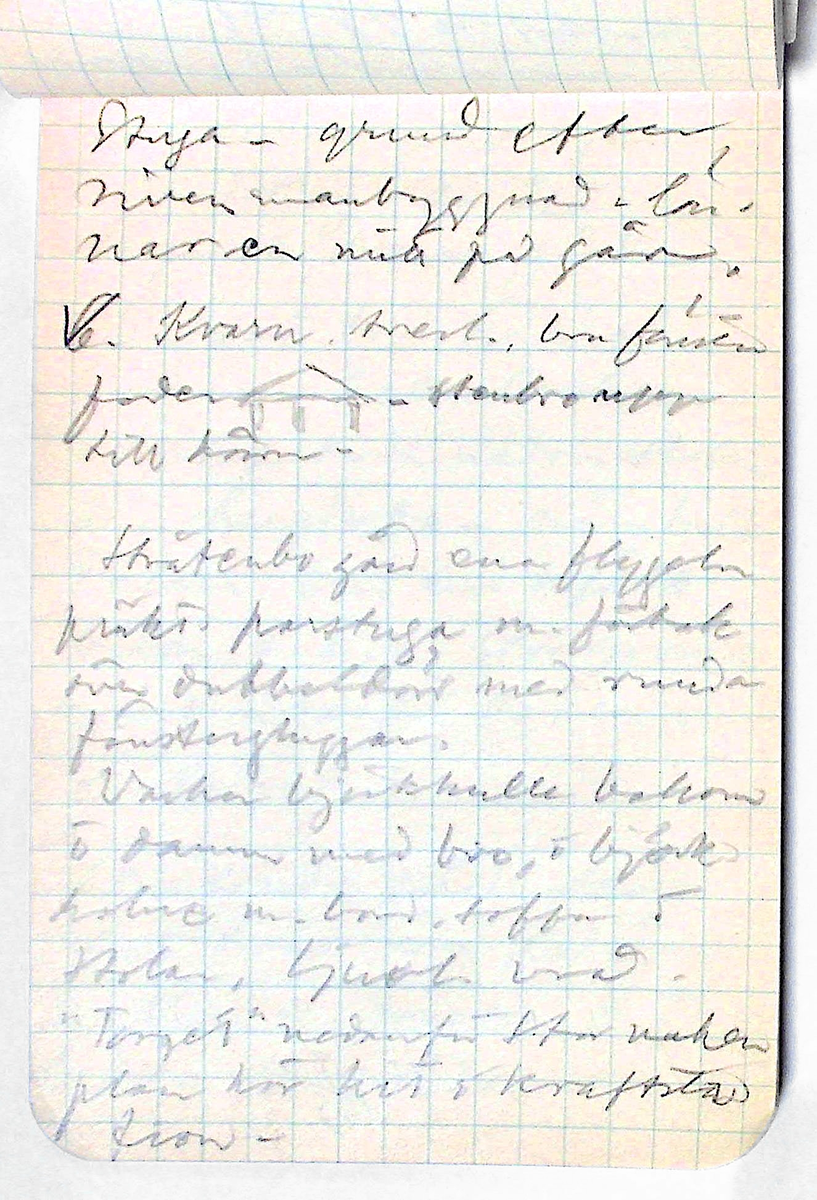 Stuga - grund efter
riven manbyggnad - lön-
nar en mit på gårn.
6. Kvarn. tvest., bra
foder - stenbro upp
till kvarn -
Stråtenbo gård ena flygeln
präkt. parstuga m. förtak
över dubbeldörr med runda
fönstergluggar.
Vacker björkkulle bakom
o damm med bro, o björk
holme m. bord, soffa o
stolar, ljuvl. vad -
"Torget" nedanför stor vaken
plan hör hit o kraftsta
tion -